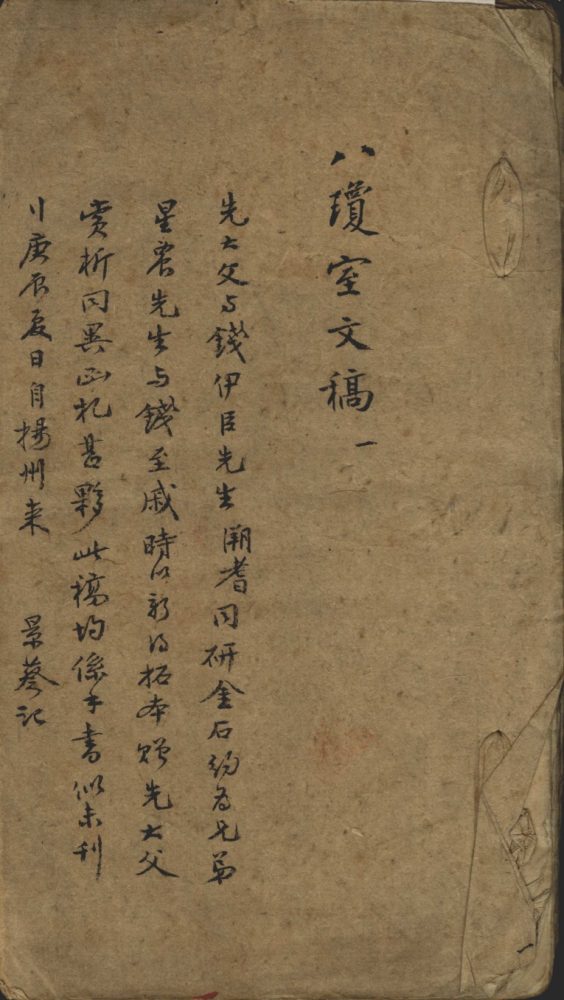 八瓊室文稿 一
先大父与錢伊臣先生溯耆同研金石約為兄弟
星農先生与錢至戚時以新得拓本贈先大父
賞析同異函札甚夥此稿均係手書似未刊
庚辰夏日自揚州来 景蔡記
一